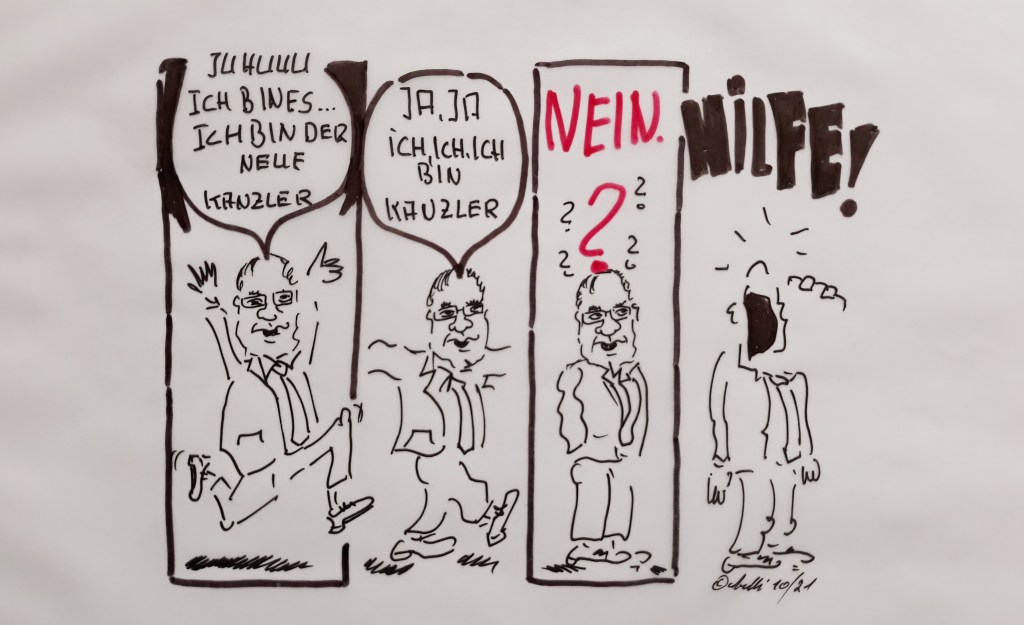 JUHUUU
ICH BINES...
ICH BIN DER
NEUE
KANZLER
JA, JA
ICH, ICH. ICH
BIN
KAUZLER
NEIN.
?
?
?
?
?
HILFE!
10/21